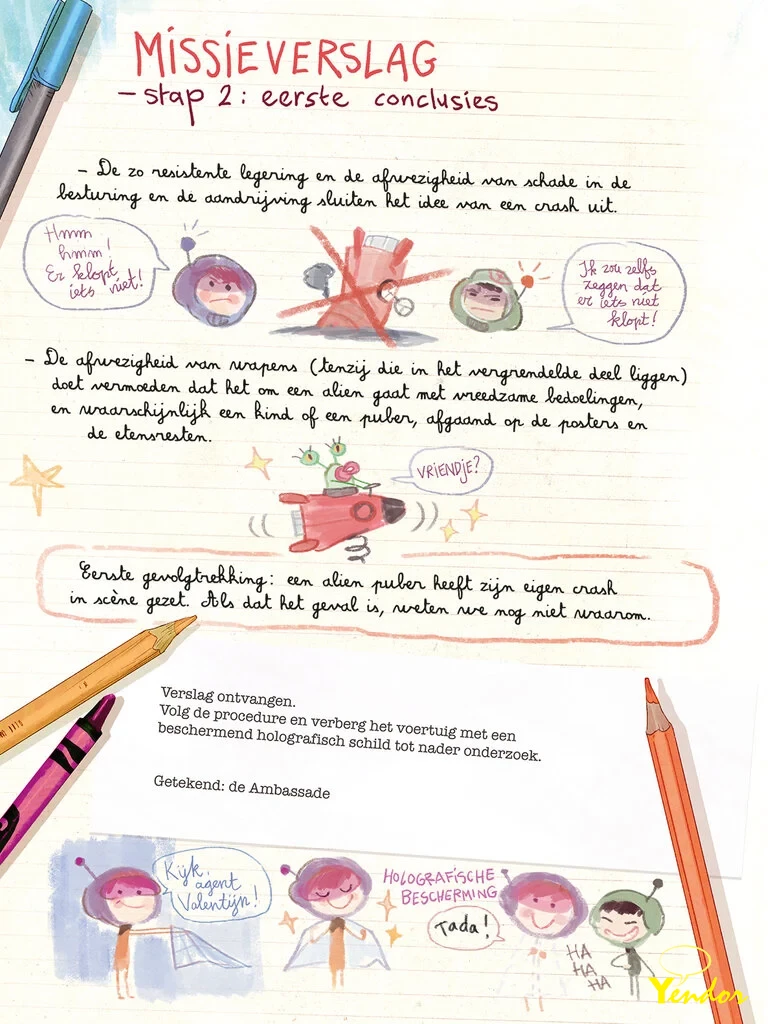 MISSIEVERSLAG
- stap 2: eerste conclusies
- De zo resistente legering en de afwezigheid van schade in de
besturing en de aandrijving sluiten het idee van een crash uit.
Hmm
hmm!
Er klopt
iets niet!
Ik zou zelfs
zeggen dat
er iets niet
klopt!
- De afwezigheid van wapens (tenzij die in het vergrendelde deel liggen)
doet vermoeden dat het om een alien gaat met vreedzame bedoelingen,
en waarschijnlijk een kind of een puber, afgaand op de posters en
de etensresten.
VRIENDJE?
Eerste gevolgtrekking: een alien puber heeft zijn eigen crash
in scène gezet. Als dat het geval is, weten we nog niet waarom.
Verslag ontvangen.
Volg de procedure en verberg het voertuig met een
beschermend holografisch schild tot nader onderzoek.
Getekend: de Ambassade
Kijk,
agent
Valentijn!
HOLOGRAFISCHE
BESCHERMING
Tada!
HA
HA
HA
Yendor